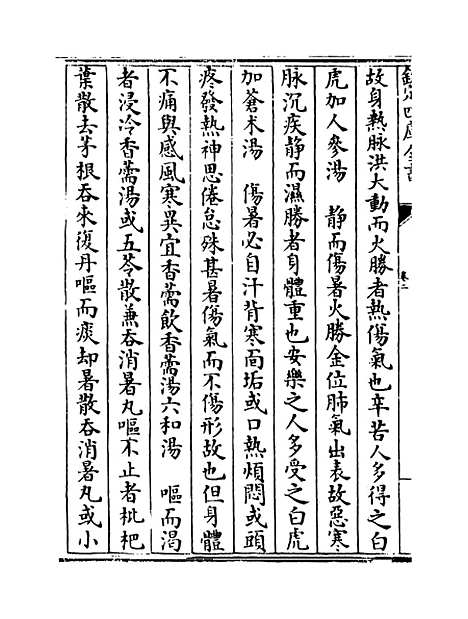 欽定四庫全書
卷二
故身熱脉洪大動而火勝者熱傷氣也辛苦人多得之白
虎加人參湯　静而傷暑火勝金位肺氣出表故惡寒
脉沉疾静而濕勝者身體重也安樂之人多受之白虎
加蒼术湯　傷暑必自汗背寒面垢或口熱煩悶或頭
疼發熱神思倦怠殊甚暑傷氣而不傷形故也但身體
不痛與感風寒異宜香薷飲香薷湯六和湯　嘔而渴
者浸冷香薷湯或五苓散兼吞消暑丸嘔不止者枇杷
葉散去茅根吞來復丹嘔而痰却暑散吞消暑丸或小